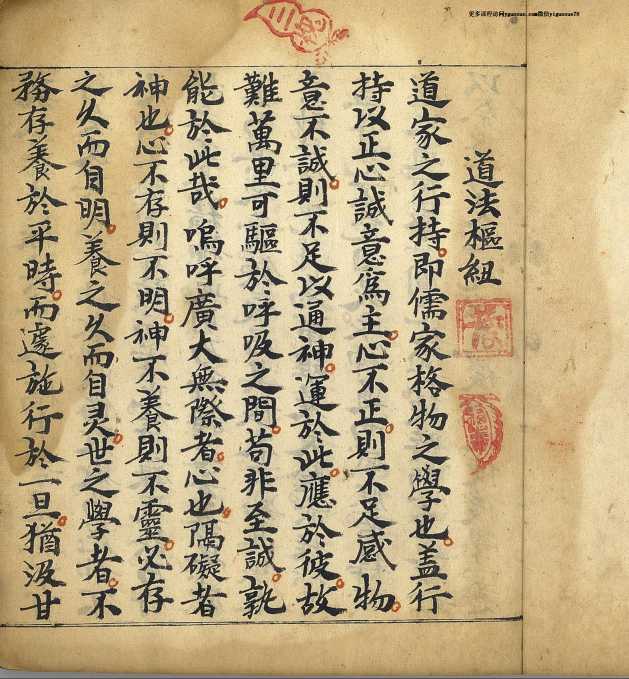 更多课程访问yguoxue.com微信yiguoxue78
道法樞紐
道家之行持。即儒家格物之學也。盖行
持以正心誠意為主。心不正。則不足感物。
意不誠。則不足以通神。運於此。應於彼。故
難萬里可驅於呼吸之間。苟非至誠。孰
能於此哉。嗚呼廣大無際者。心也。隔礙者
神也。心不存則不明。神不養則不靈。必存
之久而自明。養之久而自灵。世之學者。不
務存養於平時。而遽施行於一旦。猶汲甘